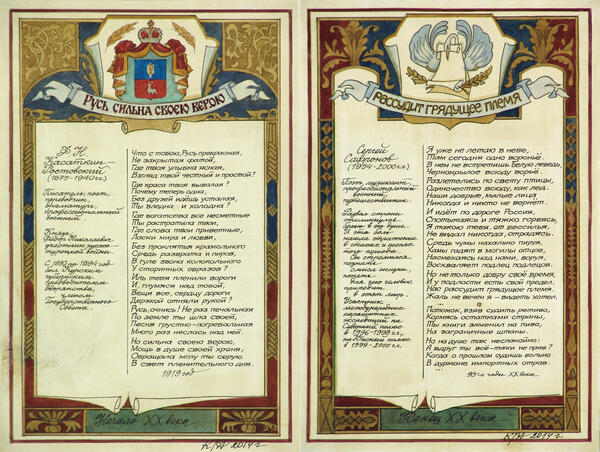 РУСЬ СИЛЬНА СВОЕЮ ВЕРОЮ
Ф. Н.
Касаткин-
Ростовский
(1875-1940г.г.)
Писатель, поэт,
переводчик,
драматург,
профессиональный
военный
Князь
Фёдор Николаевич,
участник русско-
турецкой войны
Курским
губернским
предводителем
дворянства,
членом
Государственного
Совета.
Что с тобою, Русь прекрасная,
Не закрытая фатой,
Где твоя улыбка ясная,
Взгляд твой честный и простой?
Где краса твоя бывалая?
Почему теперь одна,
Без друзей идёшь усталая,
Ты бледна и холодна?
Где богатства все несметные
Ты растратила твои,
Где слова твои приветные,
Ласки мира и любви,
Без проклятья крамольного
Средь разврата и пиров,
В гуле звона колокольного
У старинных образов?
Иль тебя пленили вороги
И, глумясь над тобой,
Вещи все, сердцу дороги
Дерзкой отняли рукой?
Русь, очнись! Не раз печальная
По земле ты шла своей,
Песня грустно-погребальная
Много раз неслась над ней.
Но сильна своею верою,
Мощь в душе своей храня,
Обращала мглу ты серую
В свет пленительного дня.
1919 год
Начало XX века
КЯА 2014 г.
РАССУДИТ ГРЯДУЩЕЕ ПЛЕМЯ
Сергей
Сафронов
(1954-2000 г.г.)
Поэт, музыкант,
профессиональный
военный,
путешественник.
Разве строки
откликнутся
болью
в эти дали
начала отражение
Он стремился
познать
смысл жизни,
понять
как зрел человек
приходит
в этот мир.
Участник
международных
парашютных
экспедиций на
Северный полюс
в 1996-1998 г.г.,
на Южный полюс
в 1999-2000 г.г.
Я уже не летаю в небе,
Там сегодня одно вороньё.
В нём не встретишь Белую лебедь,
Чернокрылое всюду ворьё.
Разлетелись по свету птицы,
Одиночество всюду, как лёд.
Наши добрые, милые лица
Никогда и никто не вернёт.
И идёт по дороге Россия,
Спотыкаясь и тяжко горбясь,
Я такою тебя, от бессилья,
Не видал никогда, отродясь.
Средь чумы нахально пируя,
Хамы гадят в могилы отцов,
Насмехаясь над нами, воруя,
Восхваляет подлец подлецов.
Но не только добру своё время,
И у подлости есть свой предел.
Нас рассудит грядущее племя.
Жаль не вечен я – видеть хотел.
...
Потомок, взяв судить ретиво,
Кормясь остатками страны,
Мы книги заменил на пиво,
На заграничные штаны.
Но на душе так неспокойно:
И вдруг ты всё-таки не прав?
Когда о прошлом судишь вольно
В дурмане импортных отрав.
...
90-е годы XX века.
Конец XX века
КЯА 2014 г.